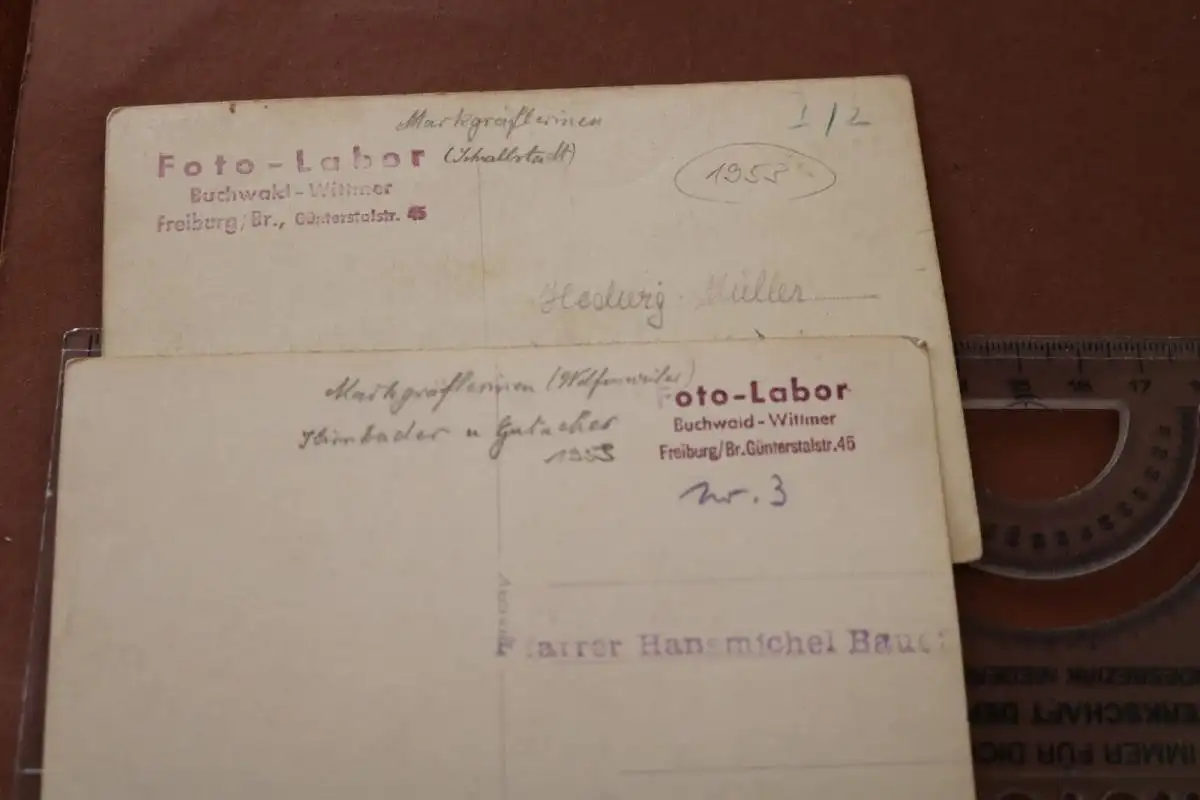 Markgräflerinnen
(Schallstadt)
I/2
1953
Foto-Labor
Buchwald-Wittmer
Freiburg/Br., Günterstalstr. 45
Hedwig Müller
Markgräflerinnen (Wolfenweiler)
u Gutacher
1953
Foto-Labor
Buchwald-Wittmer
Freiburg/Br. Günterstalstr. 45
Nr. 3
Pfarrer Hansmichel Baue
15 16 17 18
IMMER FÜR DICH